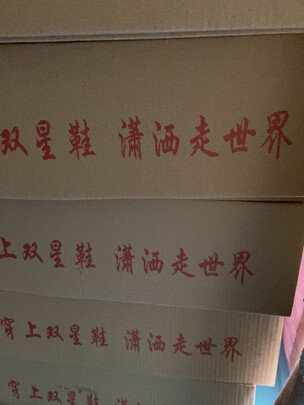 双星鞋 潇洒走世界
上双星鞋 潇洒走世界
穿上双星鞋 潇洒走世界
穿上双星鞋 潇